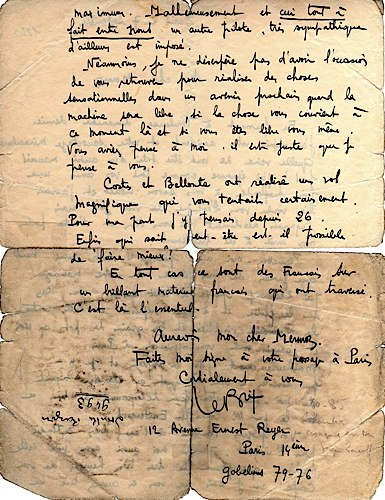 maximum. Malheureusement et ceci tout à
fait entre nous un autre pilote, très sympathique
d'ailleurs est imposé.
Néanmoins, je ne désespère pas d'avoir l'occasion
de vous retrouver pour réaliser des choses
sensationnelles dans un avenir prochain quand la
machine sera libre, si la chose vous convient à
ce moment là et si vous êtes libre vous même.
Vous aviez pensé à moi. il est juste que je
pense à vous.
Costes et Bellonte ont réalisé un vol
magnifique qui vous tentait certainement.
Pour ma part j'y pensais depuis 26.
Enfin qui sait peut-être est-il possible
de "faire mieux"!
En tout cas ce sont des Français sur
un brillant matériel français qui ont traversé.
C'est là l'essentiel.
Au revoir mon cher Mermoz.
Faites moi signe à votre passage à Paris
Cordialement à vous
Le Brix
12 Avenue Ernest Reyer
Paris 14ème
Gobelins 79-76
6493